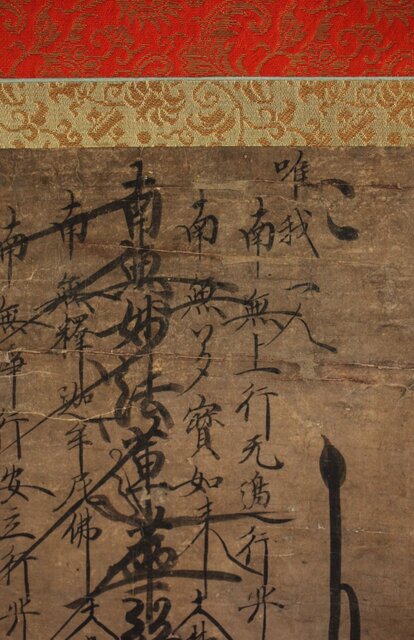 唯我一人
南無上行无邊行𦬇
南無多寶如来
南無妙法蓮華經
南無釋迦牟尼佛
南無浄行安立行𦬇